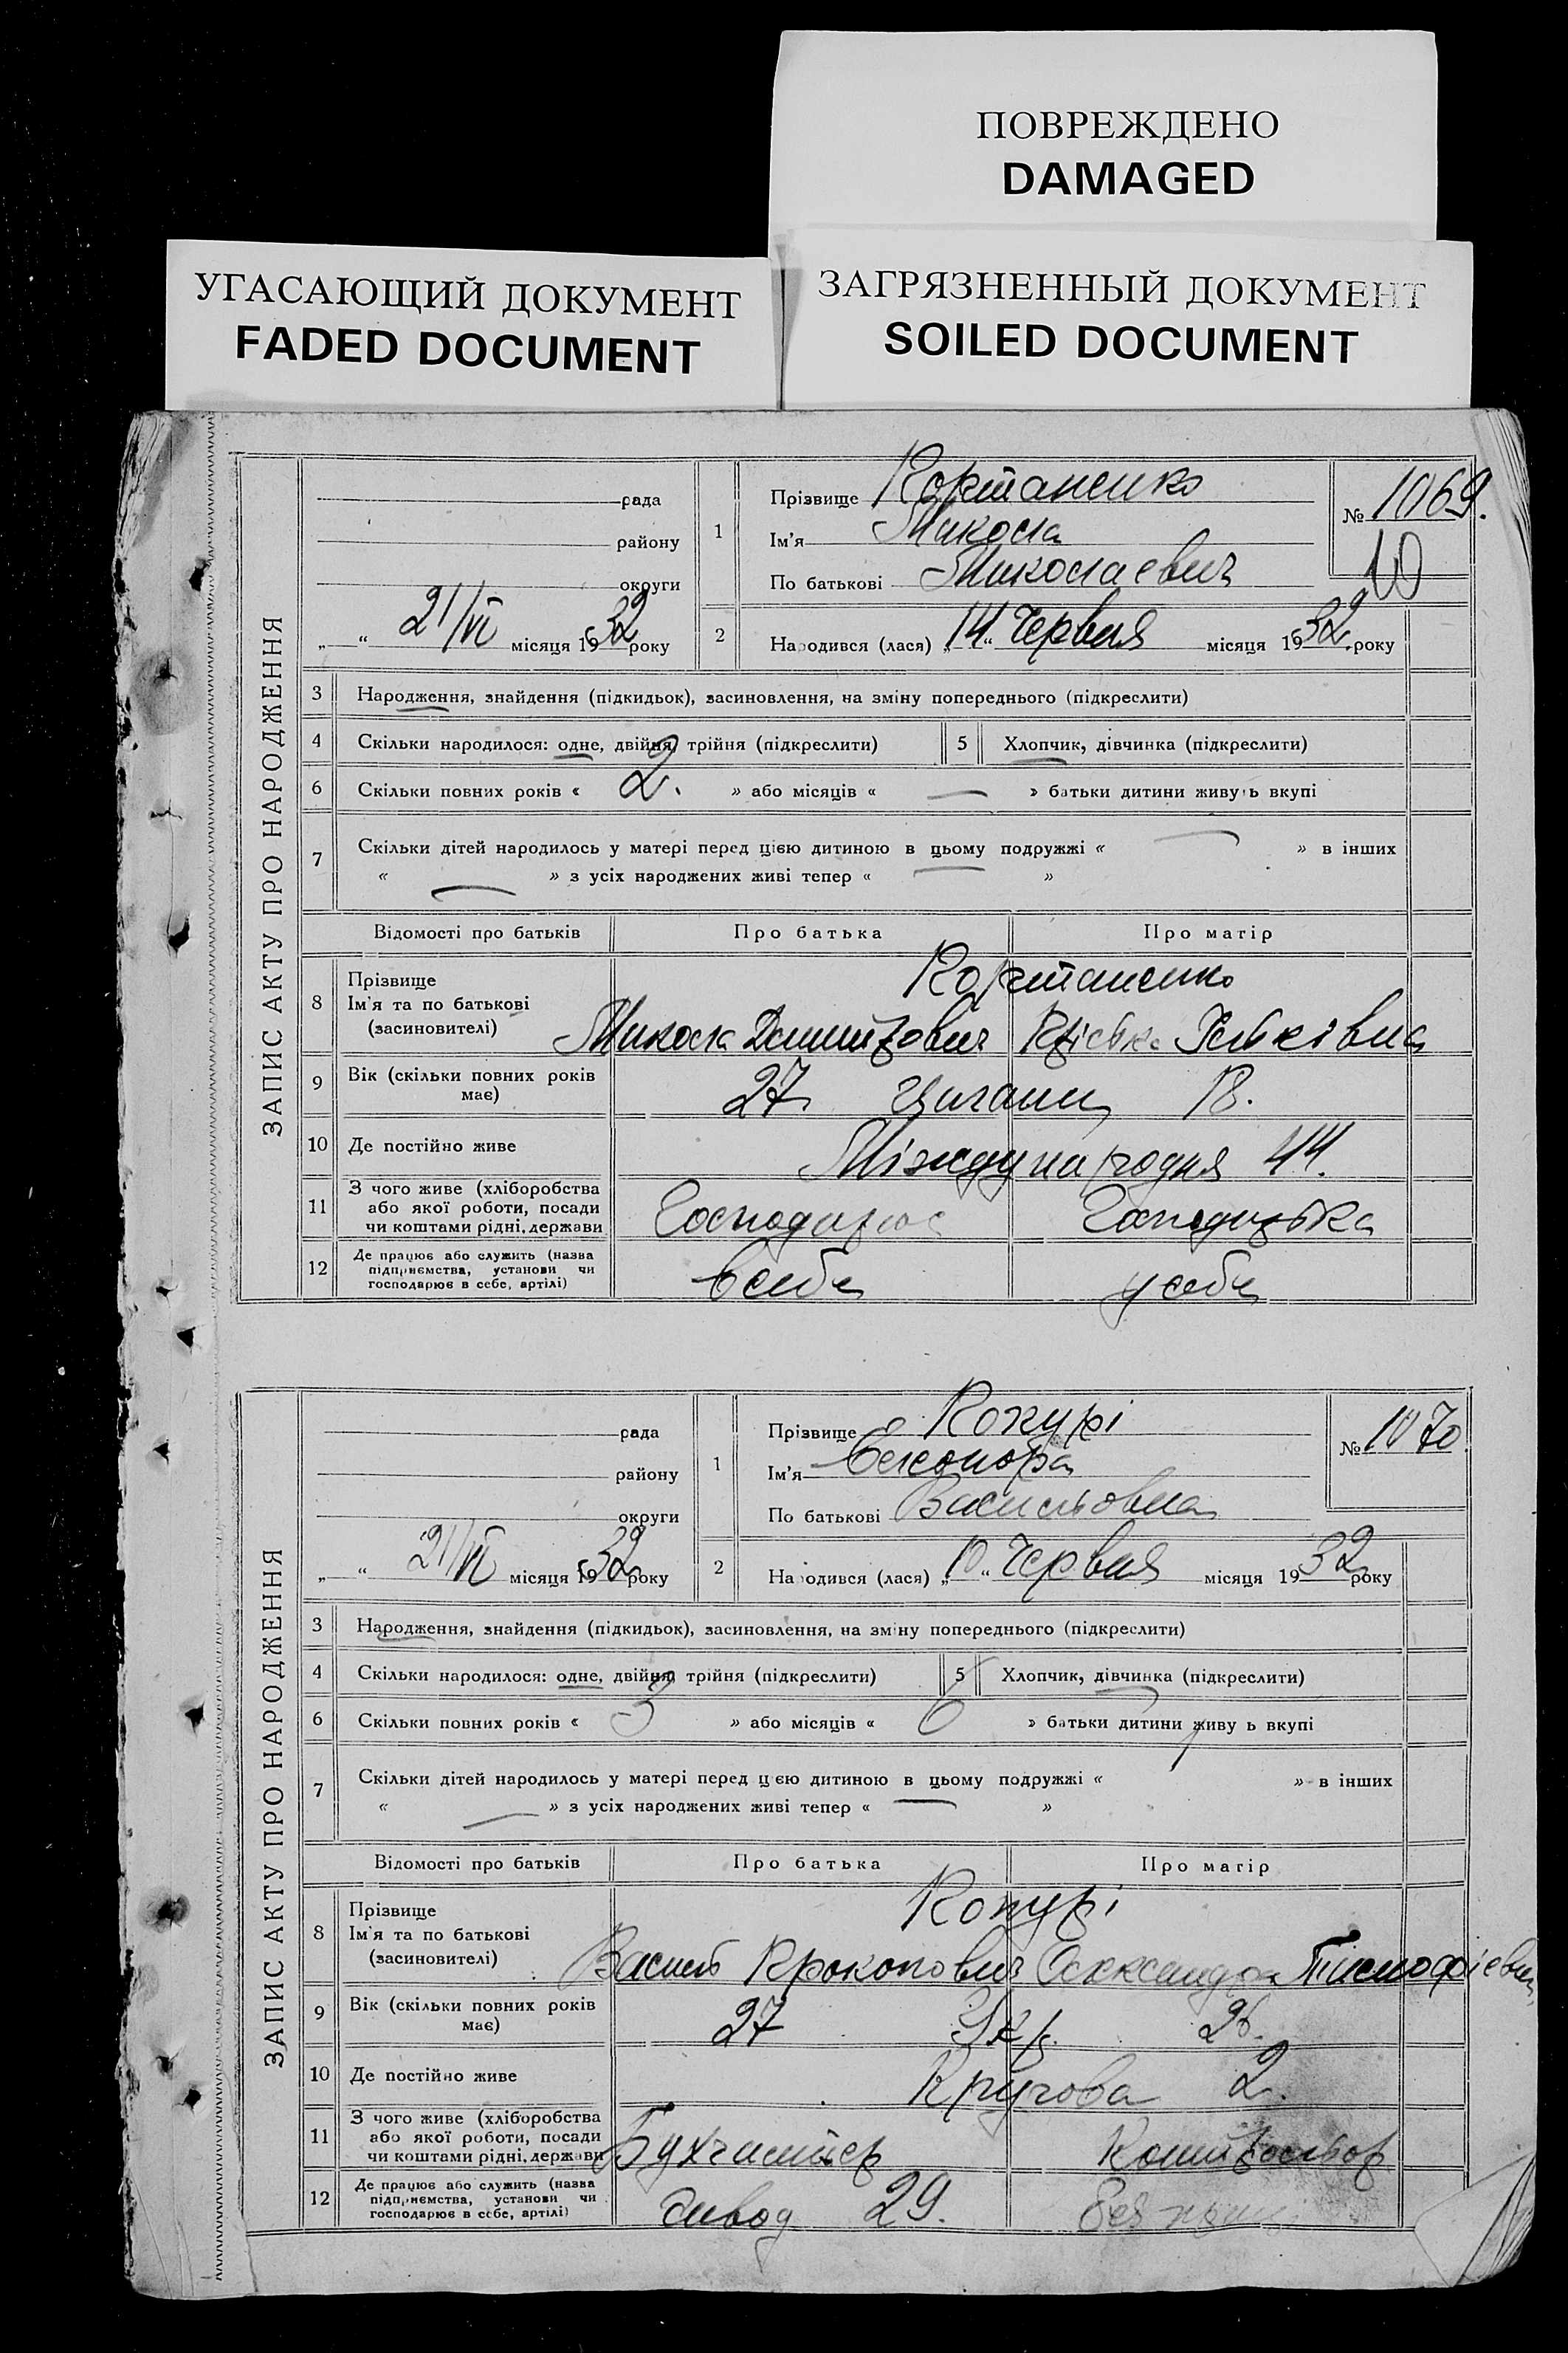 ПОВРЕЖДЕНО
DAMAGED
УГАСАЮЩИЙ ДОКУМЕНТ
FADED DOCUMENT
ЗАГРЯЗНЕННЫЙ ДОКУМЕНТ
SOILED DOCUMENT
ЗАПИС АКТУ ПРО НАРОДЖЕННЯ
рада
району
округи
„ “ 21/VI місяця 1932 року
1 Прізвище Корштаненко
Ім'я Микола
По батькові Миколаєвич
№ 1069.
10
2 Народився (лася) „14“ Червня місяця 1932 року
3 Народження, знайдення (підкидьок), засиновлення, на зміну попереднього (підкреслити)
4 Скільки народилося: одне, двійня, трійня (підкреслити) 5 Хлопчик, дівчинка (підкреслити)
6 Скільки повних років « 2. » або місяців « — » батьки дитини живуть вкупі
7 Скільки дітей народилось у матері перед цією дитиною в цьому подружжі « — » в інших
« — » з усіх народжених живі тепер « — »
Відомості про батьків Про батька Про матір
8 Прізвище
Ім'я та по батькові
(засиновителі)
Корштаненко
Микола Дмитрович
9 Вік (скільки повних років має) 27 Цигани 18.
10 Де постійно живе Міждународня 44.
11 З чого живе (хліборобства
або якої роботи, посади
чи коштами рідні, держави
Господарює Господарька
12 Де працює або служить (назва
підприємства, установи чи
господарює в себе, артілі)
в себе у себе
ЗАПИС АКТУ ПРО НАРОДЖЕННЯ
рада
району
округи
„ “ 21/VI місяця 1932 року
1 Прізвище
Ім'я Елеонора
По батькові Васильовна
№ 1070
2 Народився (лася) „10“ Червня місяця 1932 року
3 Народження, знайдення (підкидьок), засиновлення, на зміну попереднього (підкреслити)
4 Скільки народилося: одне, двійня, трійня (підкреслити) 5 Хлопчик, дівчинка (підкреслити)
6 Скільки повних років « 3 » або місяців « 6 » батьки дитини живуть вкупі
7 Скільки дітей народилось у матері перед цією дитиною в цьому подружжі « » в інших
« — » з усіх народжених живі тепер « — »
Відомості про батьків Про батька Про матір
8 Прізвище
Ім'я та по батькові
(засиновителі)
Василь Прокопович Олександра Тімофієвна
9 Вік (скільки повних років має) 27 Укр. 26.
10 Де постійно живе Кругова 2.
11 З чого живе (хліборобства
або якої роботи, посади
чи коштами рідні, держави
Бухгалтер Контрольор
12 Де працює або служить (назва
підприємства, установи чи
господарює в себе, артілі)
Завод 29. без